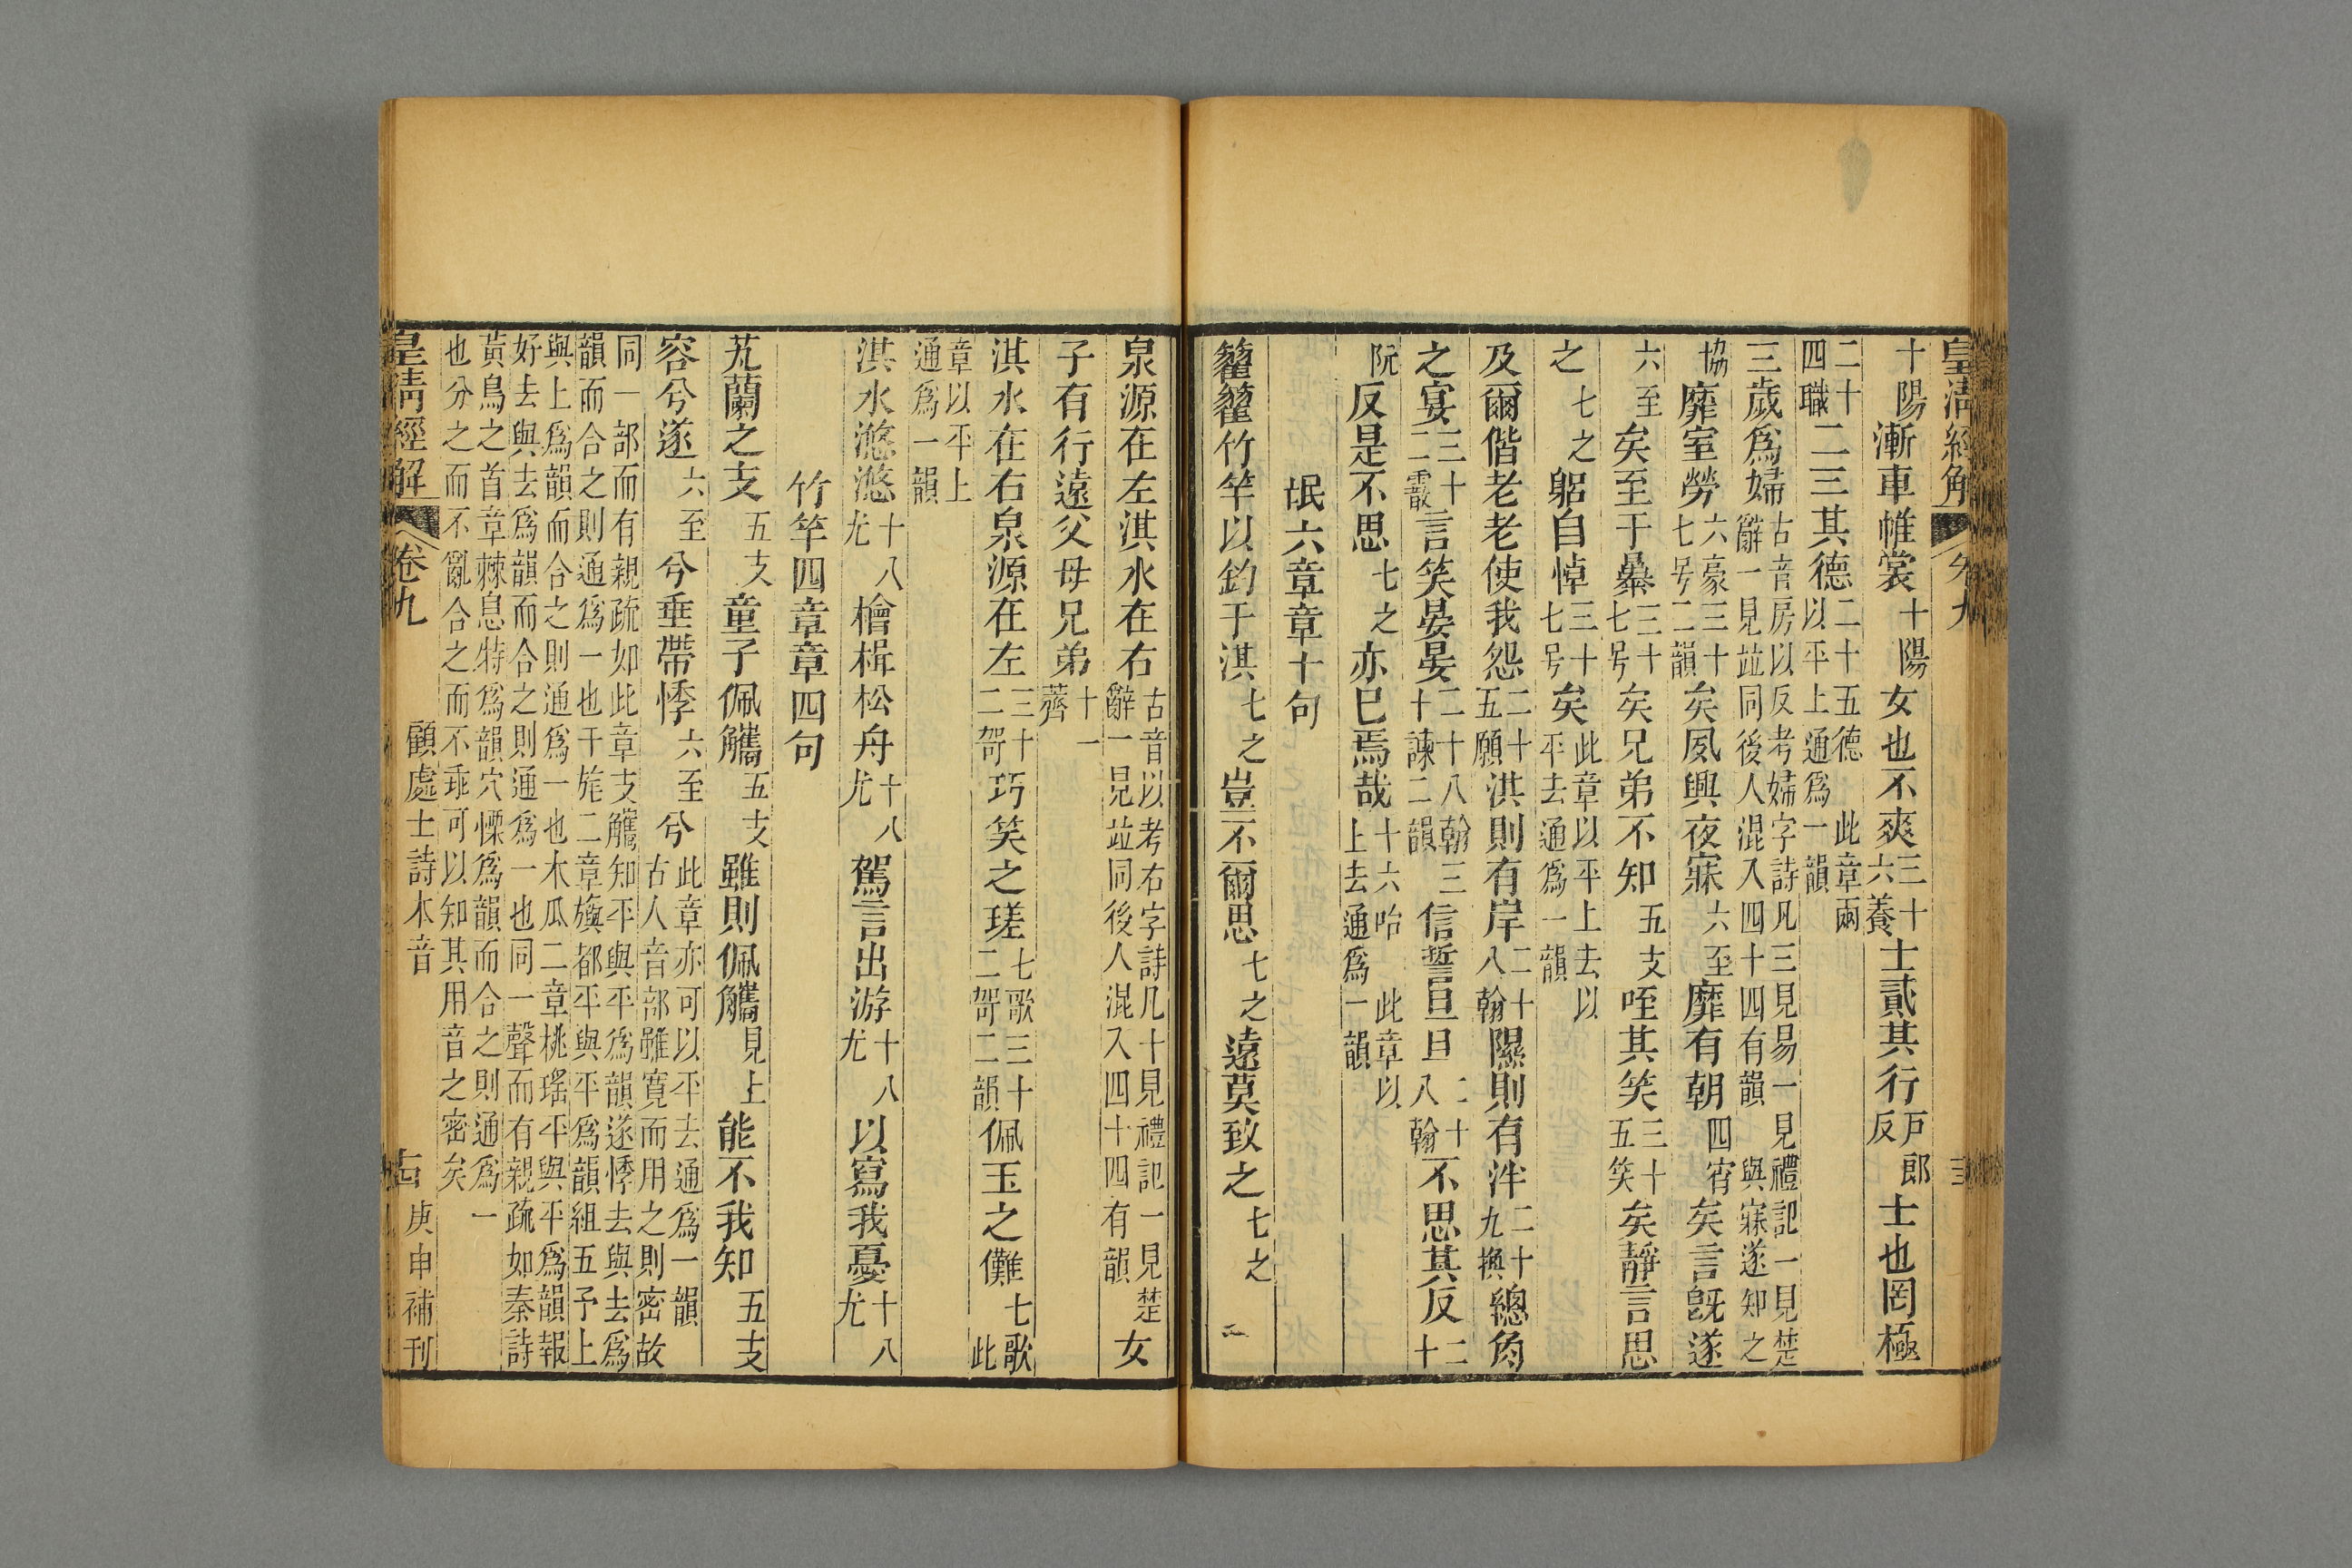 皇清經解 卷九
十陽漸車帷裳十陽女也不爽三十六養士貳其行戸郎反士也罔極
二十四職二三其德二十五德此章兩以平上通爲一韻
三歲爲婦古音房以反考婦字詩凡三見易一見禮記一見楚辭一見竝同後人混入四十四有韻與寐遂知之
協靡室勞六豪三十七号二韻矣夙興夜寐六至靡有朝四宵矣言旣遂
六至矣至于暴三十七号矣兄弟不知五支咥其笑三十五笑矣靜言思
之七之躬自悼三十七号矣此章以平上去以平去通爲一韻
及爾偕老老使我怨二十五願淇則有岸二十八翰隰則有泮二十九換總角
之宴三十二霰言笑晏晏二十八翰三十諫二韻信誓旦旦二十八翰不思其反二十
阮反是不思七之亦已焉哉十六咍此章以上去通爲一韻
氓六章章十句
籊籊竹竿以釣于淇七之豈不爾思七之遠莫致之七之
泉源在左淇水在右古音以考右字詩凡十見禮記一見楚辭一見竝同後人混入四十四有韻女
子有行遠父母兄弟十一薺
淇水在右泉源在左三十二哿巧笑之瑳七歌三十二哿二韻佩玉之儺七歌此
章以平上通爲一韻
淇水滺滺十八尤檜楫松舟十八尤駕言出游十八尤以寫我憂十八尤
竹竿四章章四句
芄蘭之支五支童子佩觿五支雖則佩觿見上能不我知五支
容兮遂六至兮垂帶悸六至兮此章亦可以平去通爲一韻古人音部雖寬而用之則密故
同一部而有親疏如此章支觿知平與平爲韻遂悸去與去爲
韻而合之則通爲一也干旄二章旟都平與平爲韻組五予上
與上爲韻而合之則通爲一也木瓜二章桃瑤平與平爲韻報
好去與去爲韻而合之則通爲一也同一聲而有親疏如秦詩
黃鳥之首章棘息特爲韻穴慄爲韻而合之則通爲一
也分之而不亂合之而不乖可以知其用音之密矣
皇清經解 卷九 顧處士詩本音 十四 庚申補刊